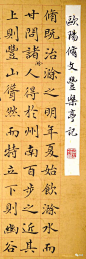 歐陽脩文豐樂亭記
脩既治滁之明年夏始飲滁水而
甘問諸人得於州南百步之近其
上則豐山聳然而特立下則幽谷